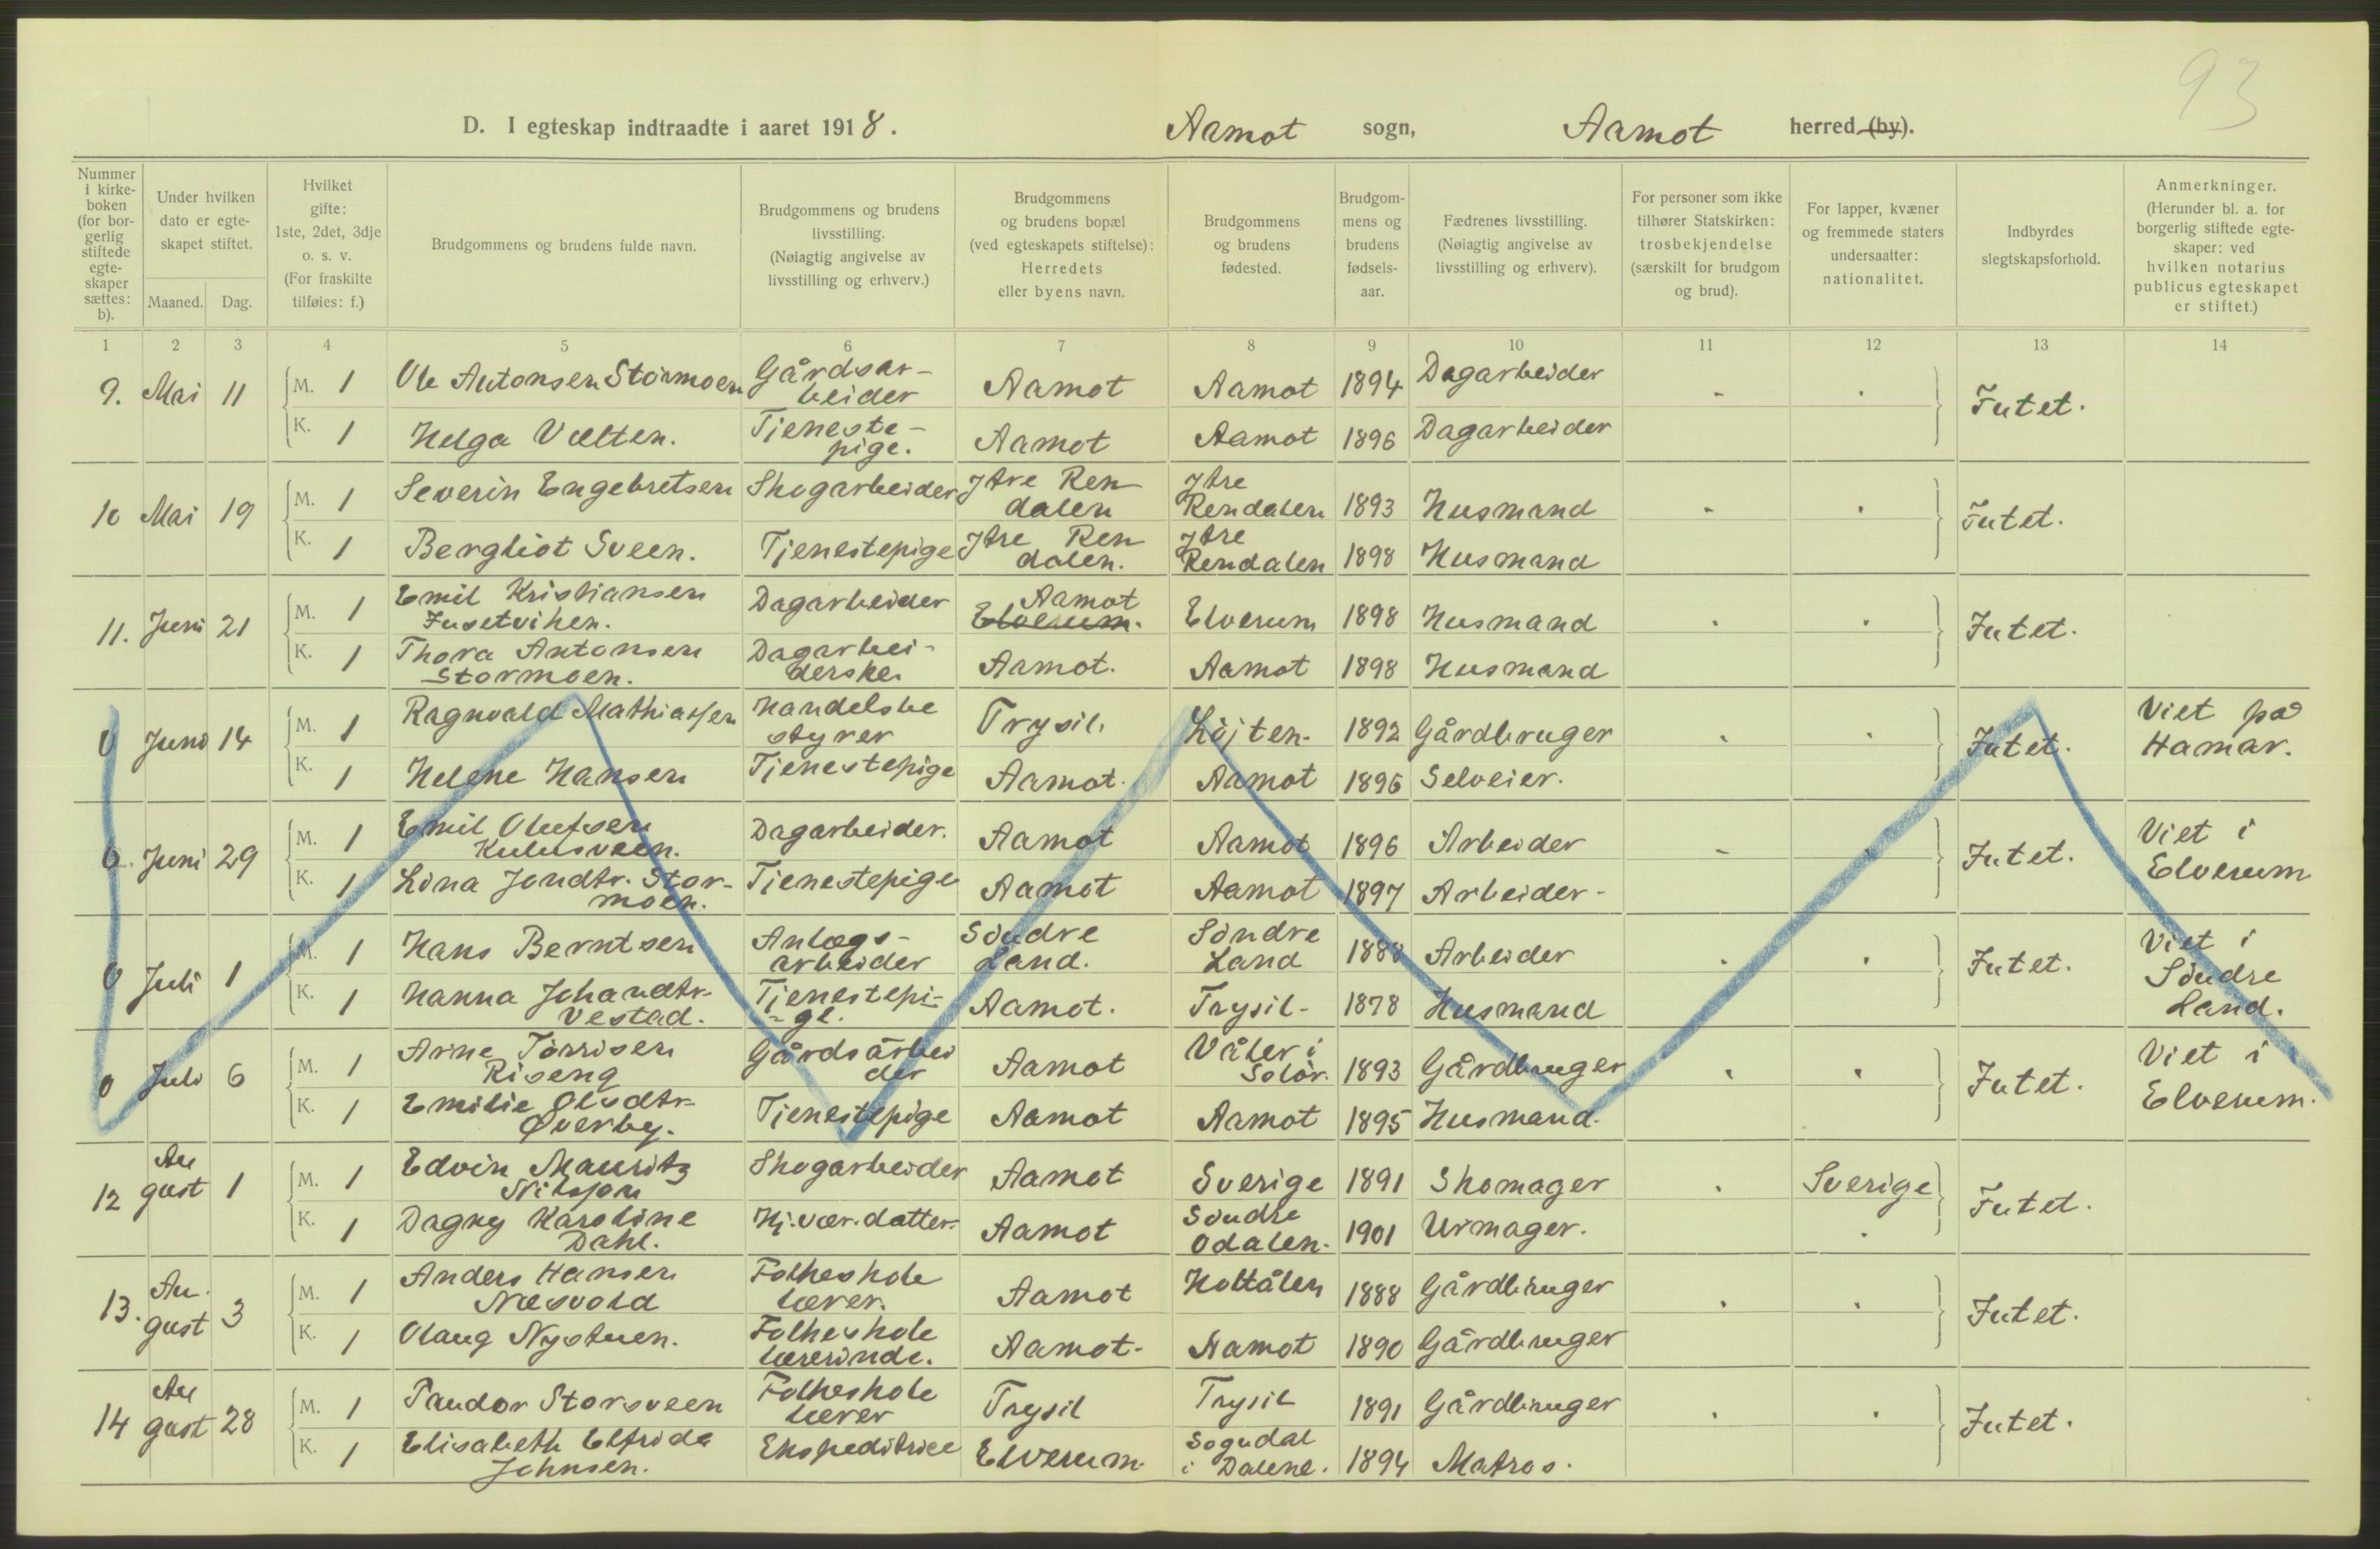 93
D. I egteskap indtraadte i aaret 1918. Aamot sogn, Aamot herred (by).
Nummer i kirke-boken (for bor-gerlig stiftede egte-skaper sættes: b).
Under hvilken dato er egte-skapet stiftet.
Maaned. Dag.
Hvilket gifte: 1ste, 2det, 3dje o. s. v. (For fraskilte tilføies: f.)
Brudgommens og brudens fulde navn.
Brudgommens og brudens livsstilling. (Nøiagtig angivelse av livsstilling og erhverv.)
Brudgommens og brudens bopæl (ved egteskapets stiftelse): Herredets eller byens navn.
Brudgommens og brudens fødested.
Brudgom-mens og brudens fødsels-aar.
Fædrenes livsstilling. (Nøiagtig angivelse av livsstilling og erhverv).
For personer som ikke tilhører Statskirken: trosbekjendelse (særskilt for brudgom og brud).
For lapper, kvæner og fremmede staters undersaatter: nationalitet.
Indbyrdes slegtskapsforhold.
Anmerkninger. (Herunder bl. a. for borgerlig stiftede egte-skaper: ved hvilken notarius publicus egteskapet er stiftet.)
1 2 3 4 5 6 7 8 9 10 11 12 13 14
9. Mai 11 M. 1 Ole Antonsen Stormoen Gårdsar-beider Aamot Aamot 1894 Dagarbeider - . Intet.
K. 1 Helga Vælten. Tjeneste-pige. Aamot Aamot 1896 Dagarbeider
10 Mai 19 M. 1 Severin Engebretsen Skogarbeider Ytre Ren dalen Ytre Rendalen 1893 Husmand - . Intet.
K. 1 Bergliot Sveen. Tjenestepige Ytre Ren dalen. Ytre Rendalen 1898 Husmand
11. Juni 21 M. 1 Emil Kristiansen Fusetviken. Dagarbeider Aamot Elverum. Elverum 1898 Husmand . . Intet.
K. 1 Thora Antonsen Stormoen. Dagarbei-derske. Aamot. Aamot 1898 Husmand
0 Juni 14 M. 1 Ragnvald Mathiassen Handelsbe styrer Trysil. Löjten. 1892 Gårdbruger . . Intet. Viet på Hamar.
K. 1 Helene Hansen Tjenestepige Aamot. Aamot 1896 Selveier.
0. Juni 29 M. 1 Emil Olufsen Dagarbeider. Aamot Aamot 1896 Arbeider - . Intet. Viet i Elverum
K. 1 Lina Jondtr. Stor-moen. Tjenestepige Aamot Aamot 1897 Arbeider-
0 Juli 1 M. 1 Hans Berntsen Anlægs-arbeider Söndre Land. Söndre Land 1888 Arbeider . . Intet. Viet i Söndre Land.
K. 1 Hanna Johandtr. Vestad. Tjenestepi-ge. Aamot. Trysil- 1878 Husmand
0 Juli 6 M. 1 Arne Torrisen Riseng Gårdsarbei der Aamot Våler i Solör. 1893 Gårdbruger . . Intet. Viet i Elverum.
K. 1 Emilie Olsdtr. Øverby. Tjenestepige Aamot Aamot 1895 Husmand.
12 Au gust 1 M. 1 Edvin Mauritz Nilsson Skogarbeider Aamot Sverige 1891 Skomager . Sverige Intet.
K. 1 Dagny Karoline Dahl. Hj.vær.datter. Aamot Söndre Odalen. 1901 Urmager. .
13. Au. gust 3 M. 1 Anders Hansen Næsvold Folkeskole lærer. Aamot Holtålen 1888 Gårdbruger . . Intet.
K. 1 Olaug Nystuen. Folkeskole lærerinde. Aamot- Aamot 1890 Gårdbruger
14 Au gust 28 M. 1 Pandor Storsveen Folkeskole lærer Trysil Trysil 1891 Gårdbruger . . Intet.
K. 1 Elisabeth Elfrida Johnsen. Ekspeditrice Elverum. Sogndal i Dalene. 1894 Matros.